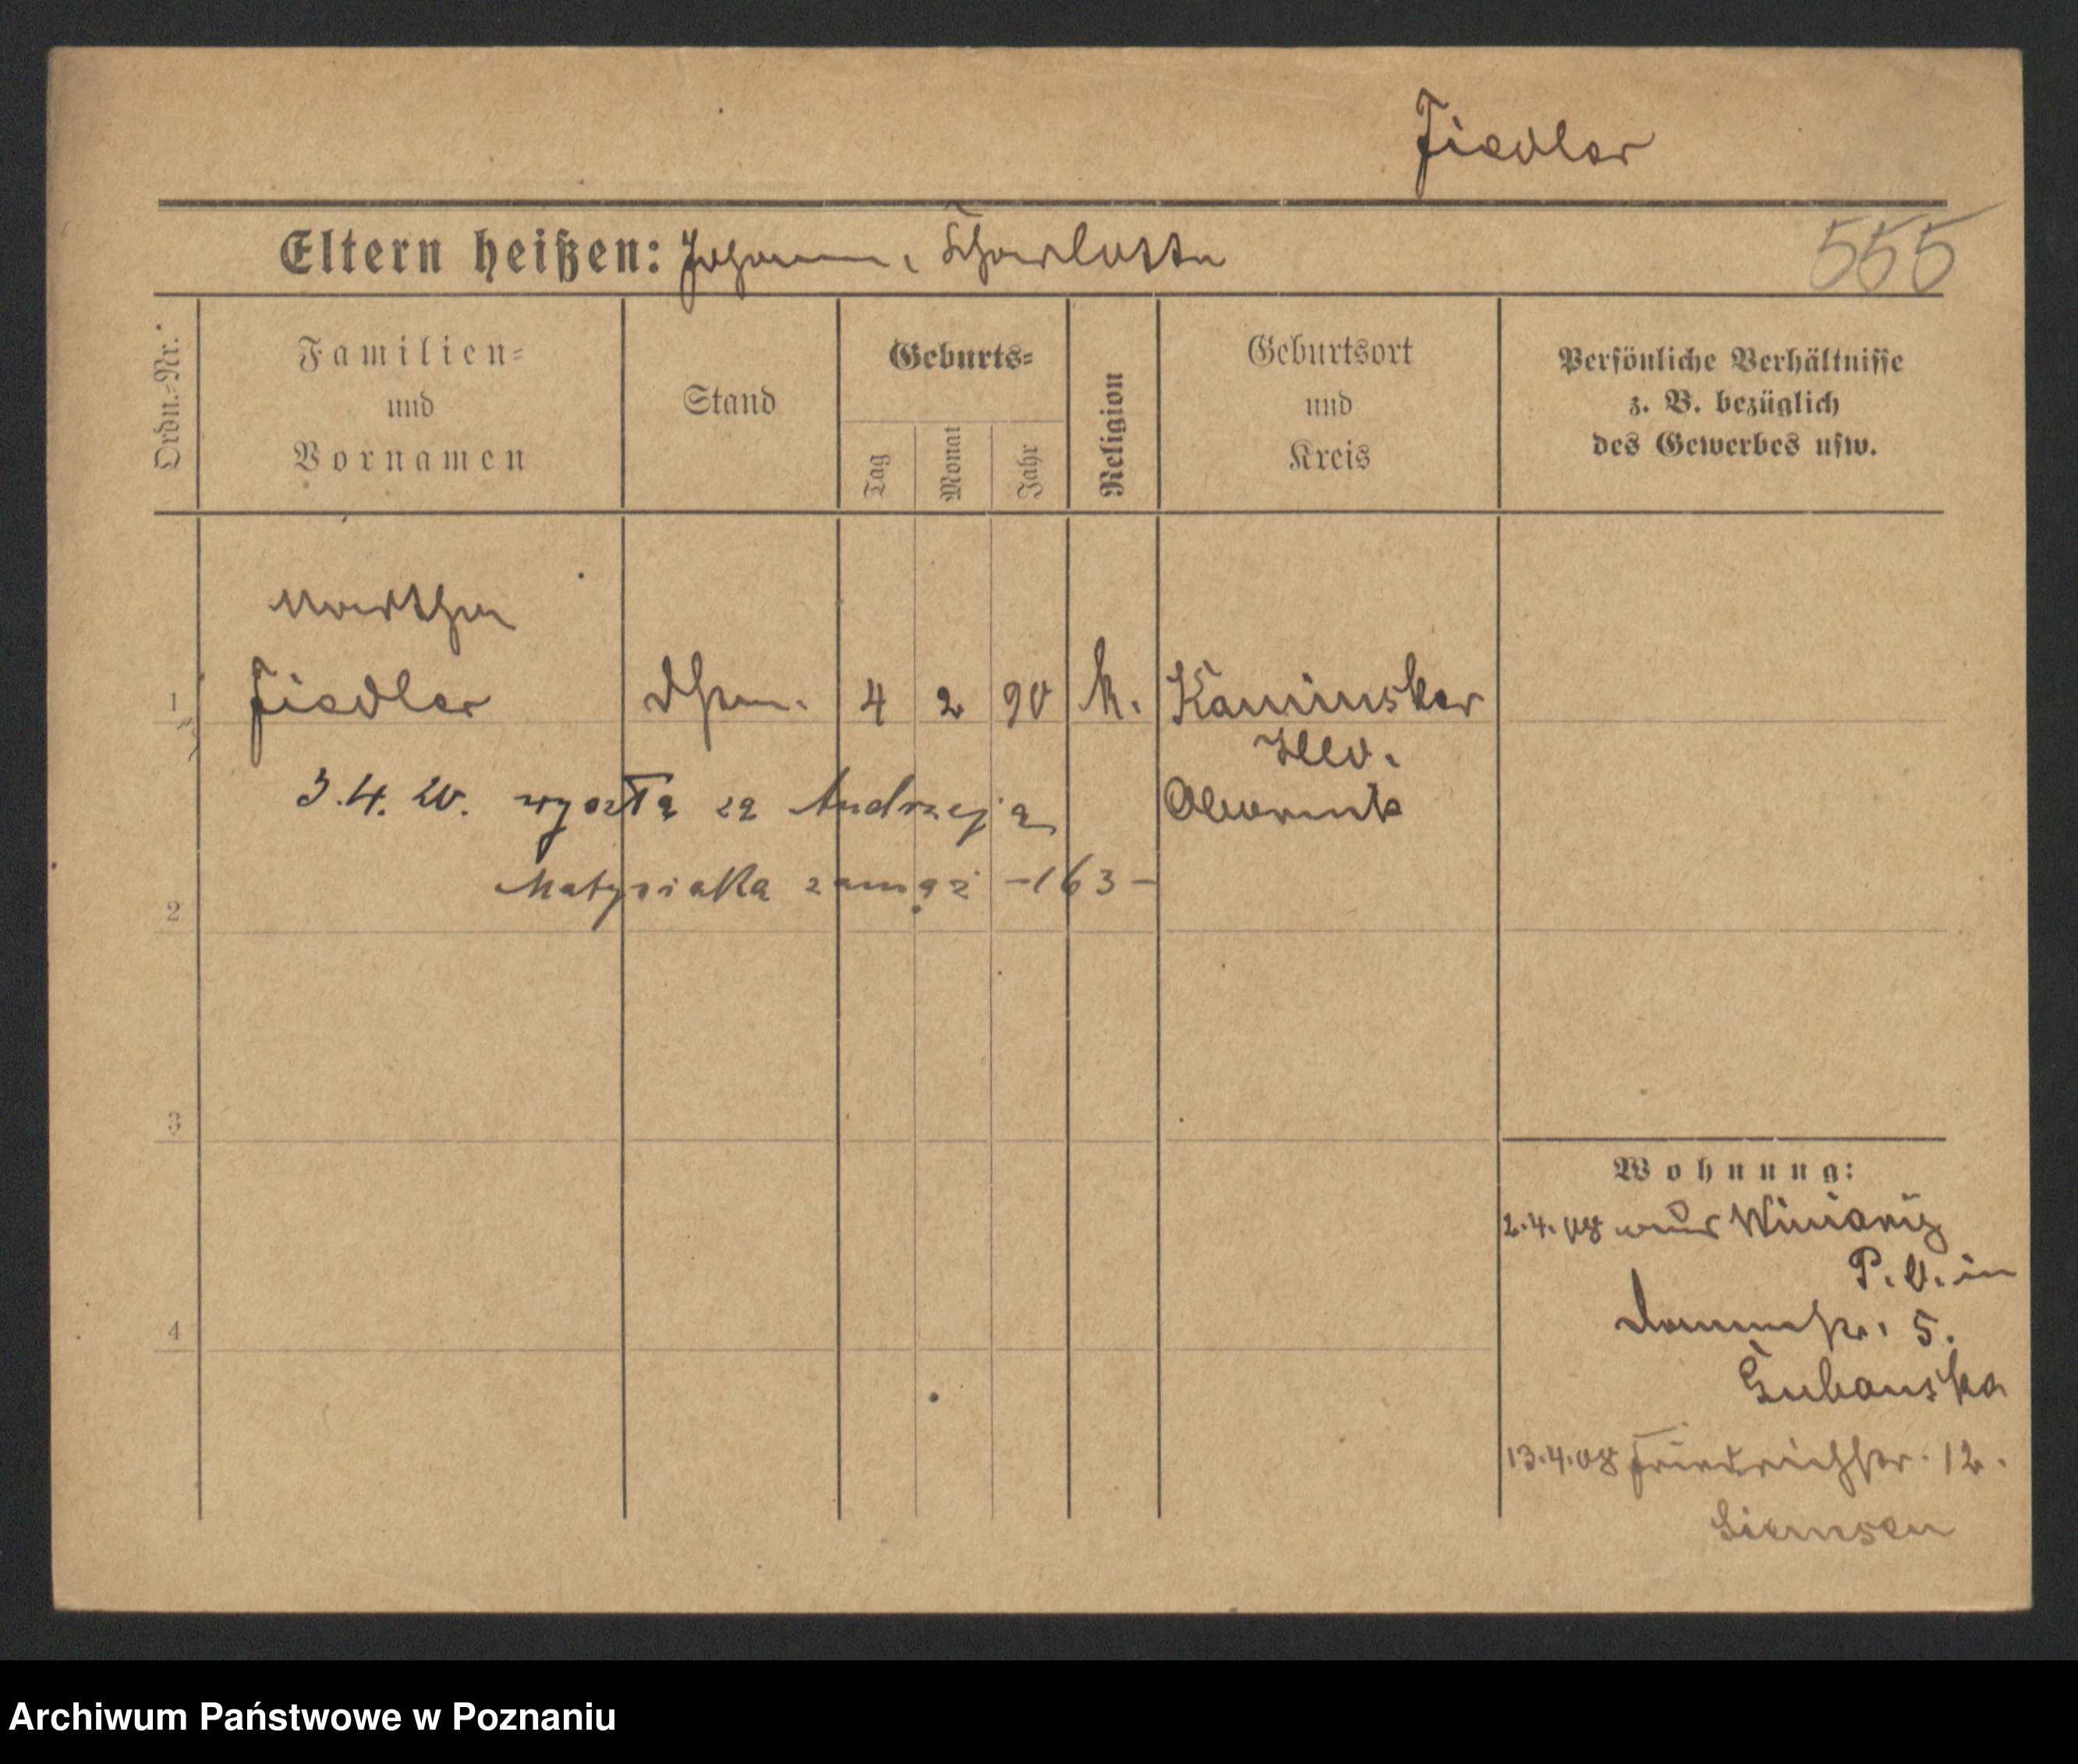 Fiedler
Eltern heißen: Johann, Charlotte
555
Ordn.-Nr.
Familien-
und
Vornamen
Stand
Geburts-
Tag
Monat
Jahr
Religion
Geburtsort
und
Kreis
Persönliche Verhältnisse
z. B. bezüglich
des Gewerbes usw.
Martha
1 Fiedler 4 2 90 k. Kaminsker
Hld.
3.4.20. wyszła za Andrzeja Obornik
Matysiaka zamąż -163-
2
3
4
Wohnung:
2.4.08 aus Winiary
P. O. in
Dammstr. 5.
Gubanska
13.4.08 Friedrichstr. 12.
Siemsen
Archiwum Państwowe w Poznaniu